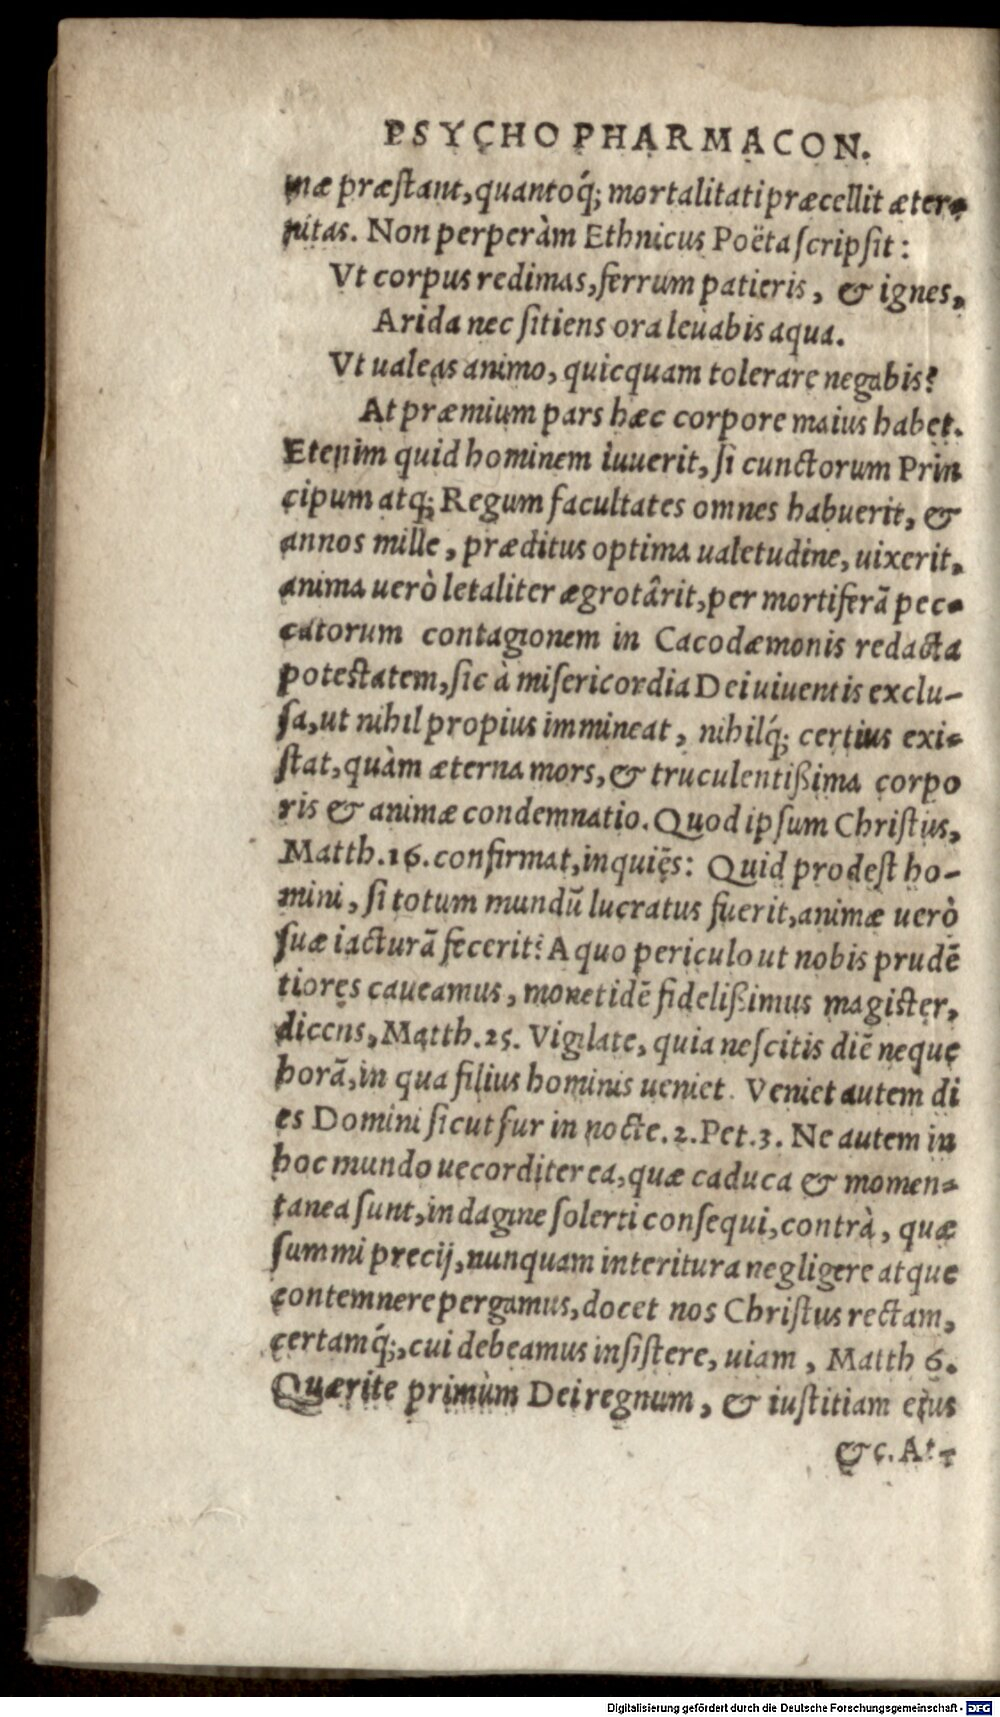 PSYCHOPHARMACON.
mæ præſtant, quantoq́; mortalitati præcellit æter-
nitas. Non perperàm Ethnicus Poëta ſcripſit:
Vt corpus redimas, ferrum patieris, & ignes,
Arida nec ſitiens ora leuabis aqua.
Vt ualeas animo, quicquam tolerare negabis?
At præmium pars hæc corpore maius habet.
Etenim quid hominem iuuerit, ſi cunctorum Prin
cipum atq; Regum facultates omnes habuerit, &
annos mille, præditus optima ualetudine, uixerit,
anima uerò letaliter ægrotârit, per mortiferā pec-
catorum contagionem in Cacodæmonis redacta
poteſtatem, ſic à miſericordia Dei uiuentis exclu-
ſa, ut nihil propius immineat, nihilq́; certius exi-
ſtat, quàm æterna mors, & truculentißima corpo
ris & animæ condemnatio. Quod ipſum Chriſtus,
Matth. 16. confirmat, inquiẽs: Quid prodeſt ho-
mini, ſi totum mundū lucratus fuerit, animæ uerò
ſuæ iacturā fecerit? A quo periculo ut nobis prudē
tiores caueamus, monet idē fidelißimus magiſter,
dicens, Matth. 25. Vigilate, quia neſcitis diē neque
horā, in qua filius hominis ueniet. Veniet autem di
es Domini ſicut fur in nocte. 2. Pet. 3. Ne autem in
hoc mundo uecorditer ea, quæ caduca & momen-
tanea ſunt, indagine ſolerti conſequi, contrà, quæ
ſummi precij, nunquam interitura negligere atque
contemnere pergamus, docet nos Chriſtus rectam,
certamq́;, cui debeamus inſiſtere, uiam, Matth 6.
Quærite primùm Dei regnum, & iuſtitiam eius
&c. At-
Digitalisierung gefördert durch die Deutsche Forschungsgemeinschaft - DFG